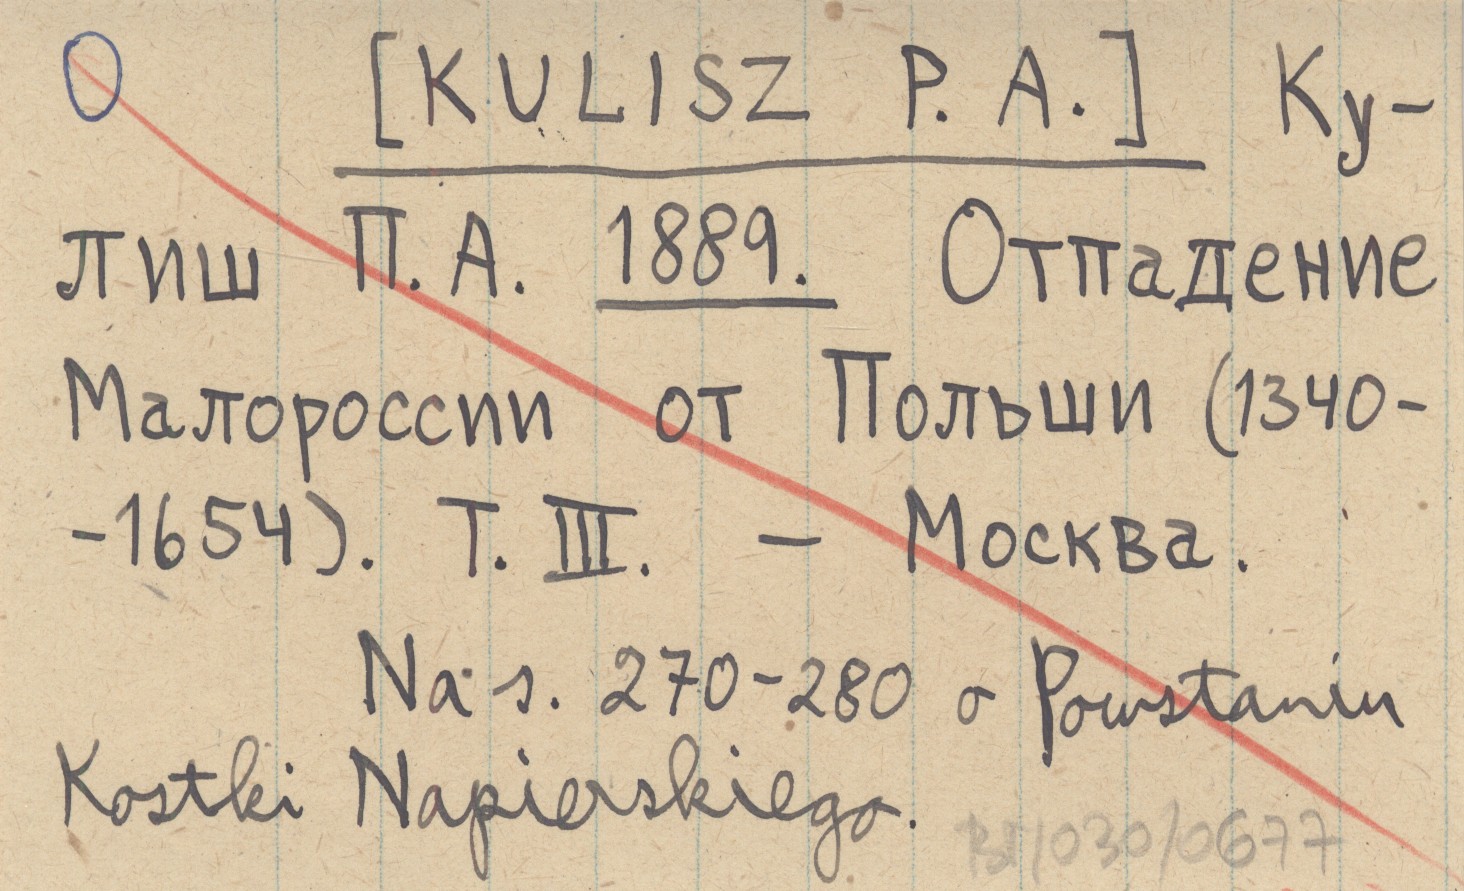 [KULISZ P. A.] Ку-
лиш П. А. 1889. Отпадение
Малороссии от Польши (1340-
-1654). Т. III. – Москва.
Na s. 270-280 o Powstaniu
Kostki Napierskiego.
BT/030/0677